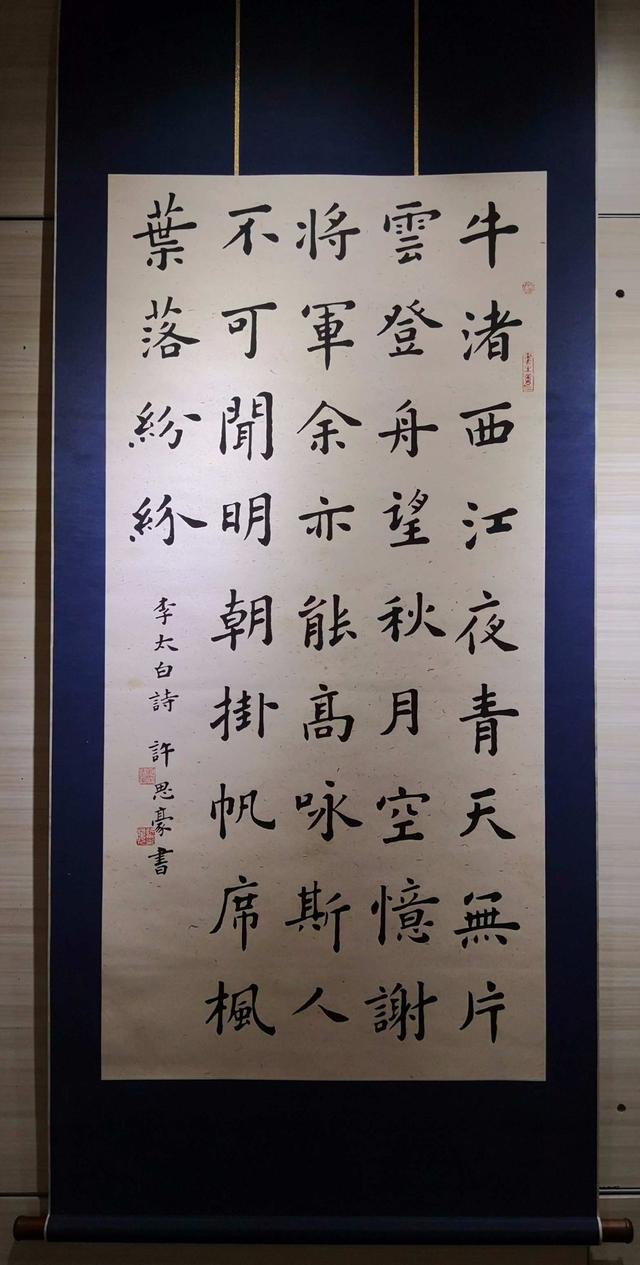 牛渚西江夜青天無片
雲登舟望秋月空憶謝
將軍余亦能高咏斯人
不可聞明朝掛帆席楓
葉落紛紛
李太白詩 許思豪書